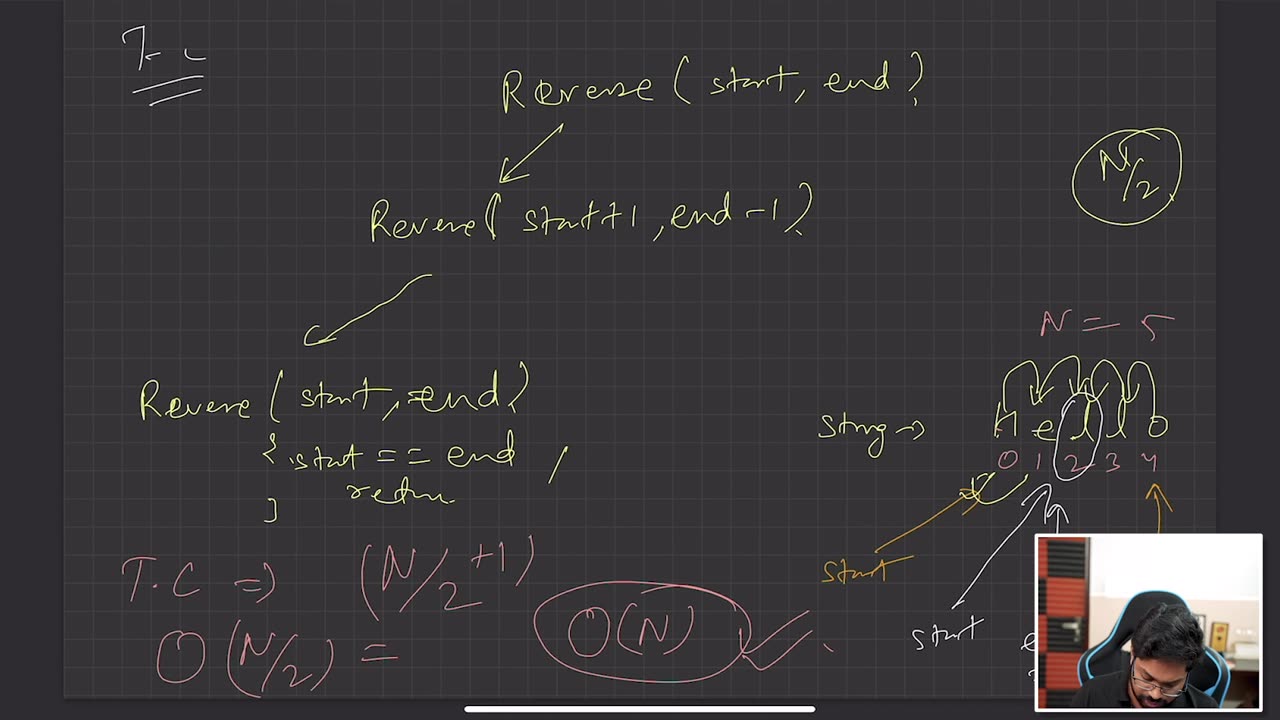 T.C
Reverse ( start, end )
N/2
Reverse ( start+1, end-1 )
N = 5
Reverse ( start, end )
String →
Hello
0 1 2 3 4
{ start == end
return
}
T.C => (N/2 +1)
start
O(N/2) =
O(N)
start